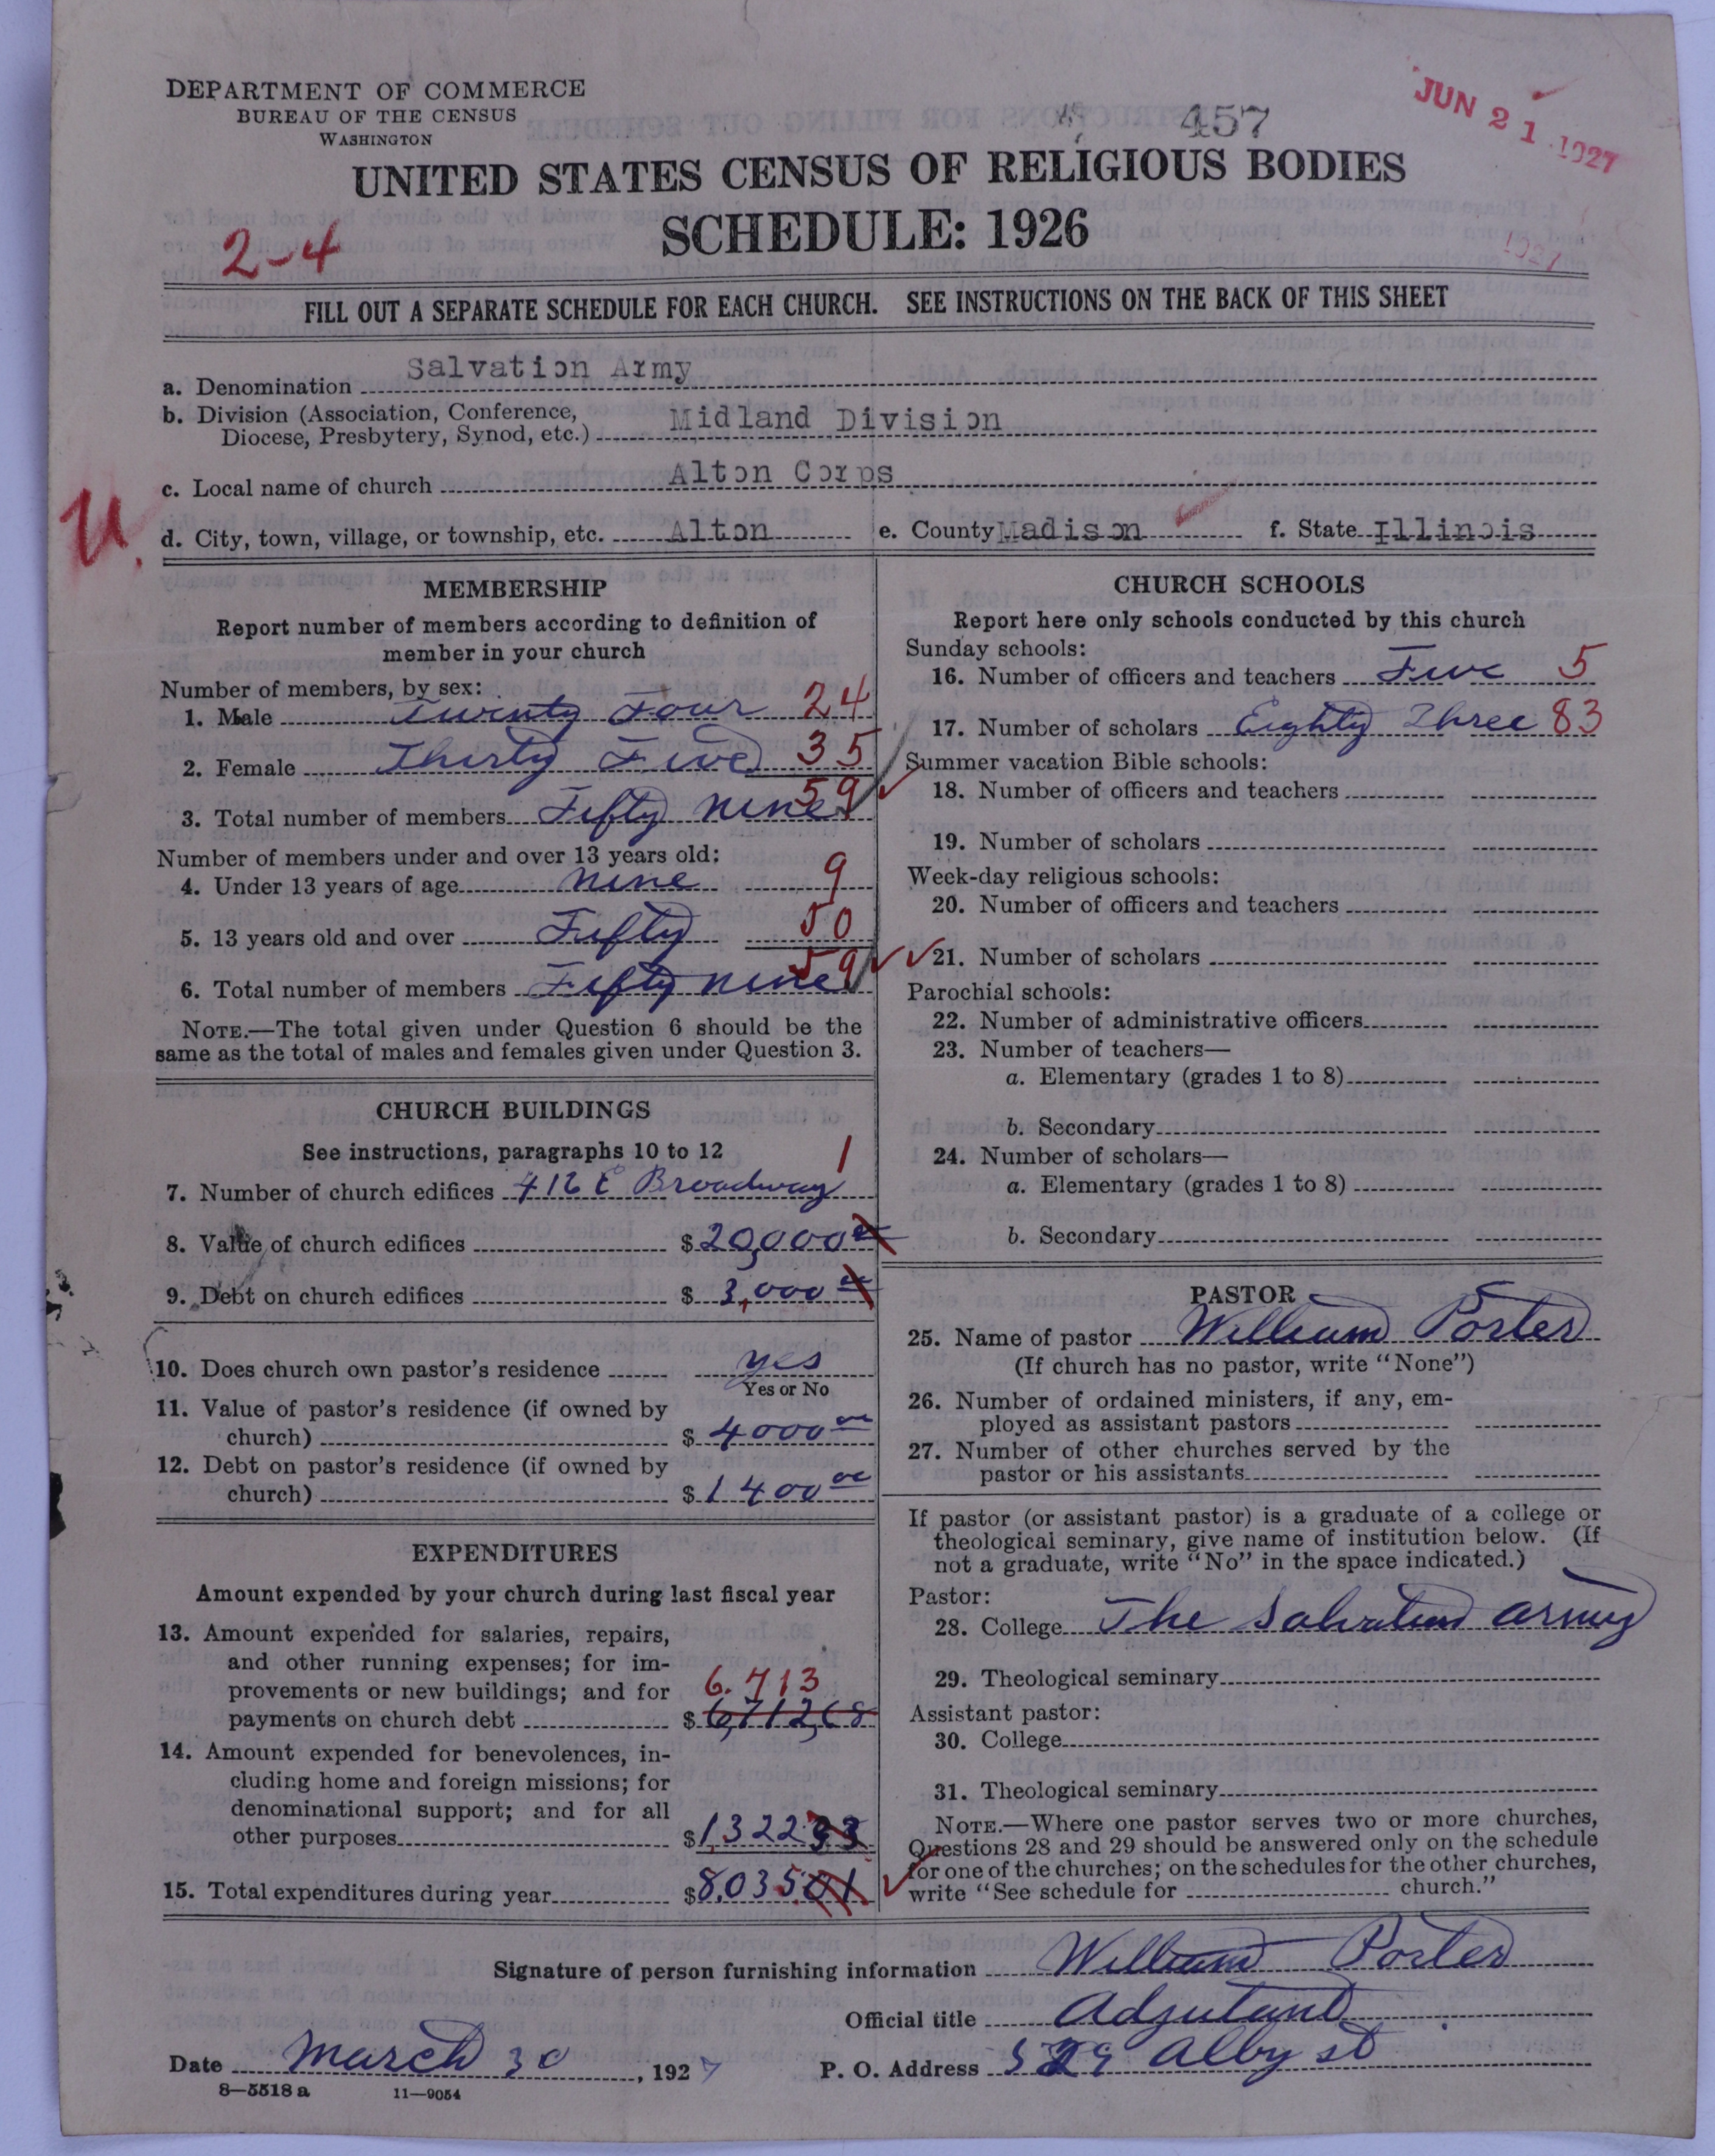 DEPARTMENT OF COMMERCE
BUREAU OF THE CENSUS
WASHINGTON
457
JUN 21 1927
UNITED STATES CENSUS OF RELIGIOUS BODIES
SCHEDULE: 1926
2-4
1927
FILL OUT A SEPARATE SCHEDULE FOR EACH CHURCH. SEE INSTRUCTIONS ON THE BACK OF THIS SHEET
a. Denomination Salvation Army
b. Division (Association, Conference,
Diocese, Presbytery, Synod, etc.) Midland Division
c. Local name of church Alton Corps
U.
d. City, town, village, or township, etc. Alton e. County Madison f. State Illinois
MEMBERSHIP
Report number of members according to definition of
member in your church
Number of members, by sex:
1. Male Twenty Four 24
2. Female Thirty Five 35
59
3. Total number of members Fifty nine
Number of members under and over 13 years old:
4. Under 13 years of age nine 9
5. 13 years old and over Fifty 50
59
6. Total number of members Fifty nine
NOTE.—The total given under Question 6 should be the
same as the total of males and females given under Question 3.
CHURCH BUILDINGS
See instructions, paragraphs 10 to 12
1
7. Number of church edifices 412 E Broadway
8. Value of church edifices $20,000 00
9. Debt on church edifices $3,000 00
10. Does church own pastor's residence yes
Yes or No
11. Value of pastor's residence (if owned by
church) $4000 00
12. Debt on pastor's residence (if owned by
church) $1400 00
EXPENDITURES
Amount expended by your church during last fiscal year
13. Amount expended for salaries, repairs,
and other running expenses; for im-
provements or new buildings; and for 6.713
payments on church debt $6,712,68
14. Amount expended for benevolences, in-
cluding home and foreign missions; for
denominational support; and for all
other purposes $1,322 33
15. Total expenditures during year $8,035 01
CHURCH SCHOOLS
Report here only schools conducted by this church
Sunday schools:
16. Number of officers and teachers Five 5
17. Number of scholars Eighty Three 83
Summer vacation Bible schools:
18. Number of officers and teachers
19. Number of scholars
Week-day religious schools:
20. Number of officers and teachers
21. Number of scholars
Parochial schools:
22. Number of administrative officers
23. Number of teachers—
a. Elementary (grades 1 to 8)
b. Secondary
24. Number of scholars—
a. Elementary (grades 1 to 8)
b. Secondary
PASTOR
25. Name of pastor William Porter
(If church has no pastor, write "None")
26. Number of ordained ministers, if any, em-
ployed as assistant pastors
27. Number of other churches served by the
pastor or his assistants
If pastor (or assistant pastor) is a graduate of a college or
theological seminary, give name of institution below. (If
not a graduate, write "No" in the space indicated.)
Pastor:
28. College The Salvation army
29. Theological seminary
Assistant pastor:
30. College
31. Theological seminary
NOTE.—Where one pastor serves two or more churches,
Questions 28 and 29 should be answered only on the schedule
for one of the churches; on the schedules for the other churches,
write "See schedule for church."
Signature of person furnishing information William Porter
Official title Adjutant
Date March 30, 1927 P. O. Address 529 Alby st
8—5518 a 11—9054